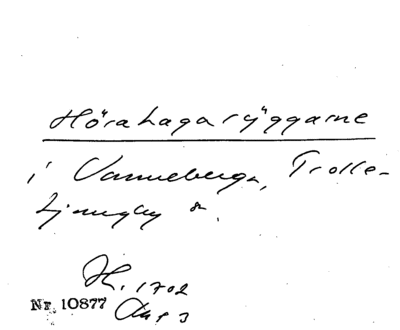 Hörahagarÿggarne
i Vanneberga, Trolle-
Ljungby sn.
H. 1702
Nr. 10877